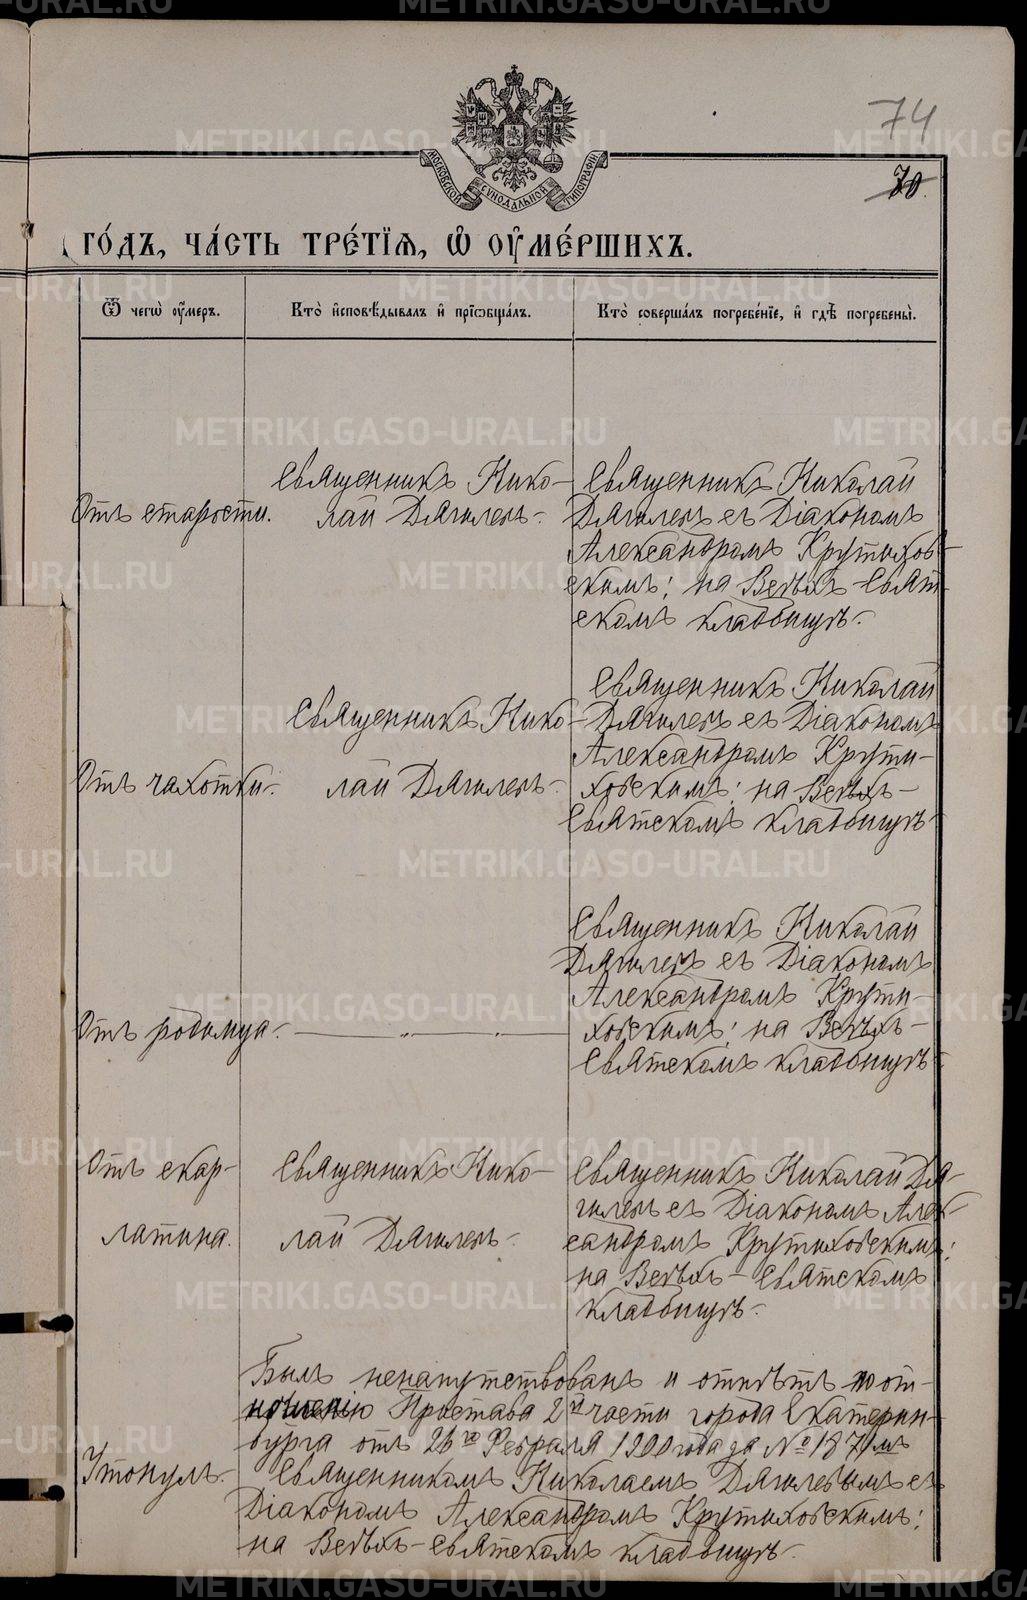 74
70.
МОСКОВСКОЙ СѴНОДАЛЬНОЙ ТИПОГРАФІИ
ГО́ДЪ, ЧА́СТЬ ТРЕ́ТІѦ, Ѡ҆ ОУ҆МЕ́РШИХЪ.
Ѿ чегѡ̀ оу҆́меръ.
Кто̀ и҆сповѣ́дывалъ и҆ прїѡбща́лъ.
Кто̀ соверша́лъ погребе́нїе, и҆ гдѣ̀ погребены̀.
Отъ старости.
Священникъ Нико-
лай Дягилевъ.
Священникъ Николай
Дягилевъ съ Діакономъ
Александромъ Крутихов-
скимъ; на Всѣхъ-Свят-
скомъ кладбищѣ.
Отъ чахотки.
Священникъ Нико-
лай Дягилевъ.
Священникъ Николай
Дягилевъ съ Діакономъ
Александромъ Крути-
ховскимъ; на Всѣхъ-
Святскомъ кладбищѣ
Отъ родимца.
Священникъ Николай
Дягилевъ съ Діакономъ
Александромъ Крути-
ховскимъ; на Всѣхъ-
Святскомъ кладбищѣ
Отъ скар-
латина.
Священникъ Нико-
лай Дягилевъ.
Священникъ Николай Дя-
гилевъ съ Діакономъ Алек-
сандромъ Крутиховскимъ;
на Всѣхъ-Святскомъ
кладбищѣ.
Утонулъ.
Былъ ненапутствованъ и отпѣтъ по от-
ношенію Пристава 2й части города Екатерин-
бурга отъ 26го Февраля 1900 года за № 1871мъ
Священникомъ Николаемъ Дягилевымъ съ
Діакономъ Александромъ Крутиховскимъ;
на Всѣхъ-Святскомъ кладбищѣ.
METRIKI.GASO-URAL.RU